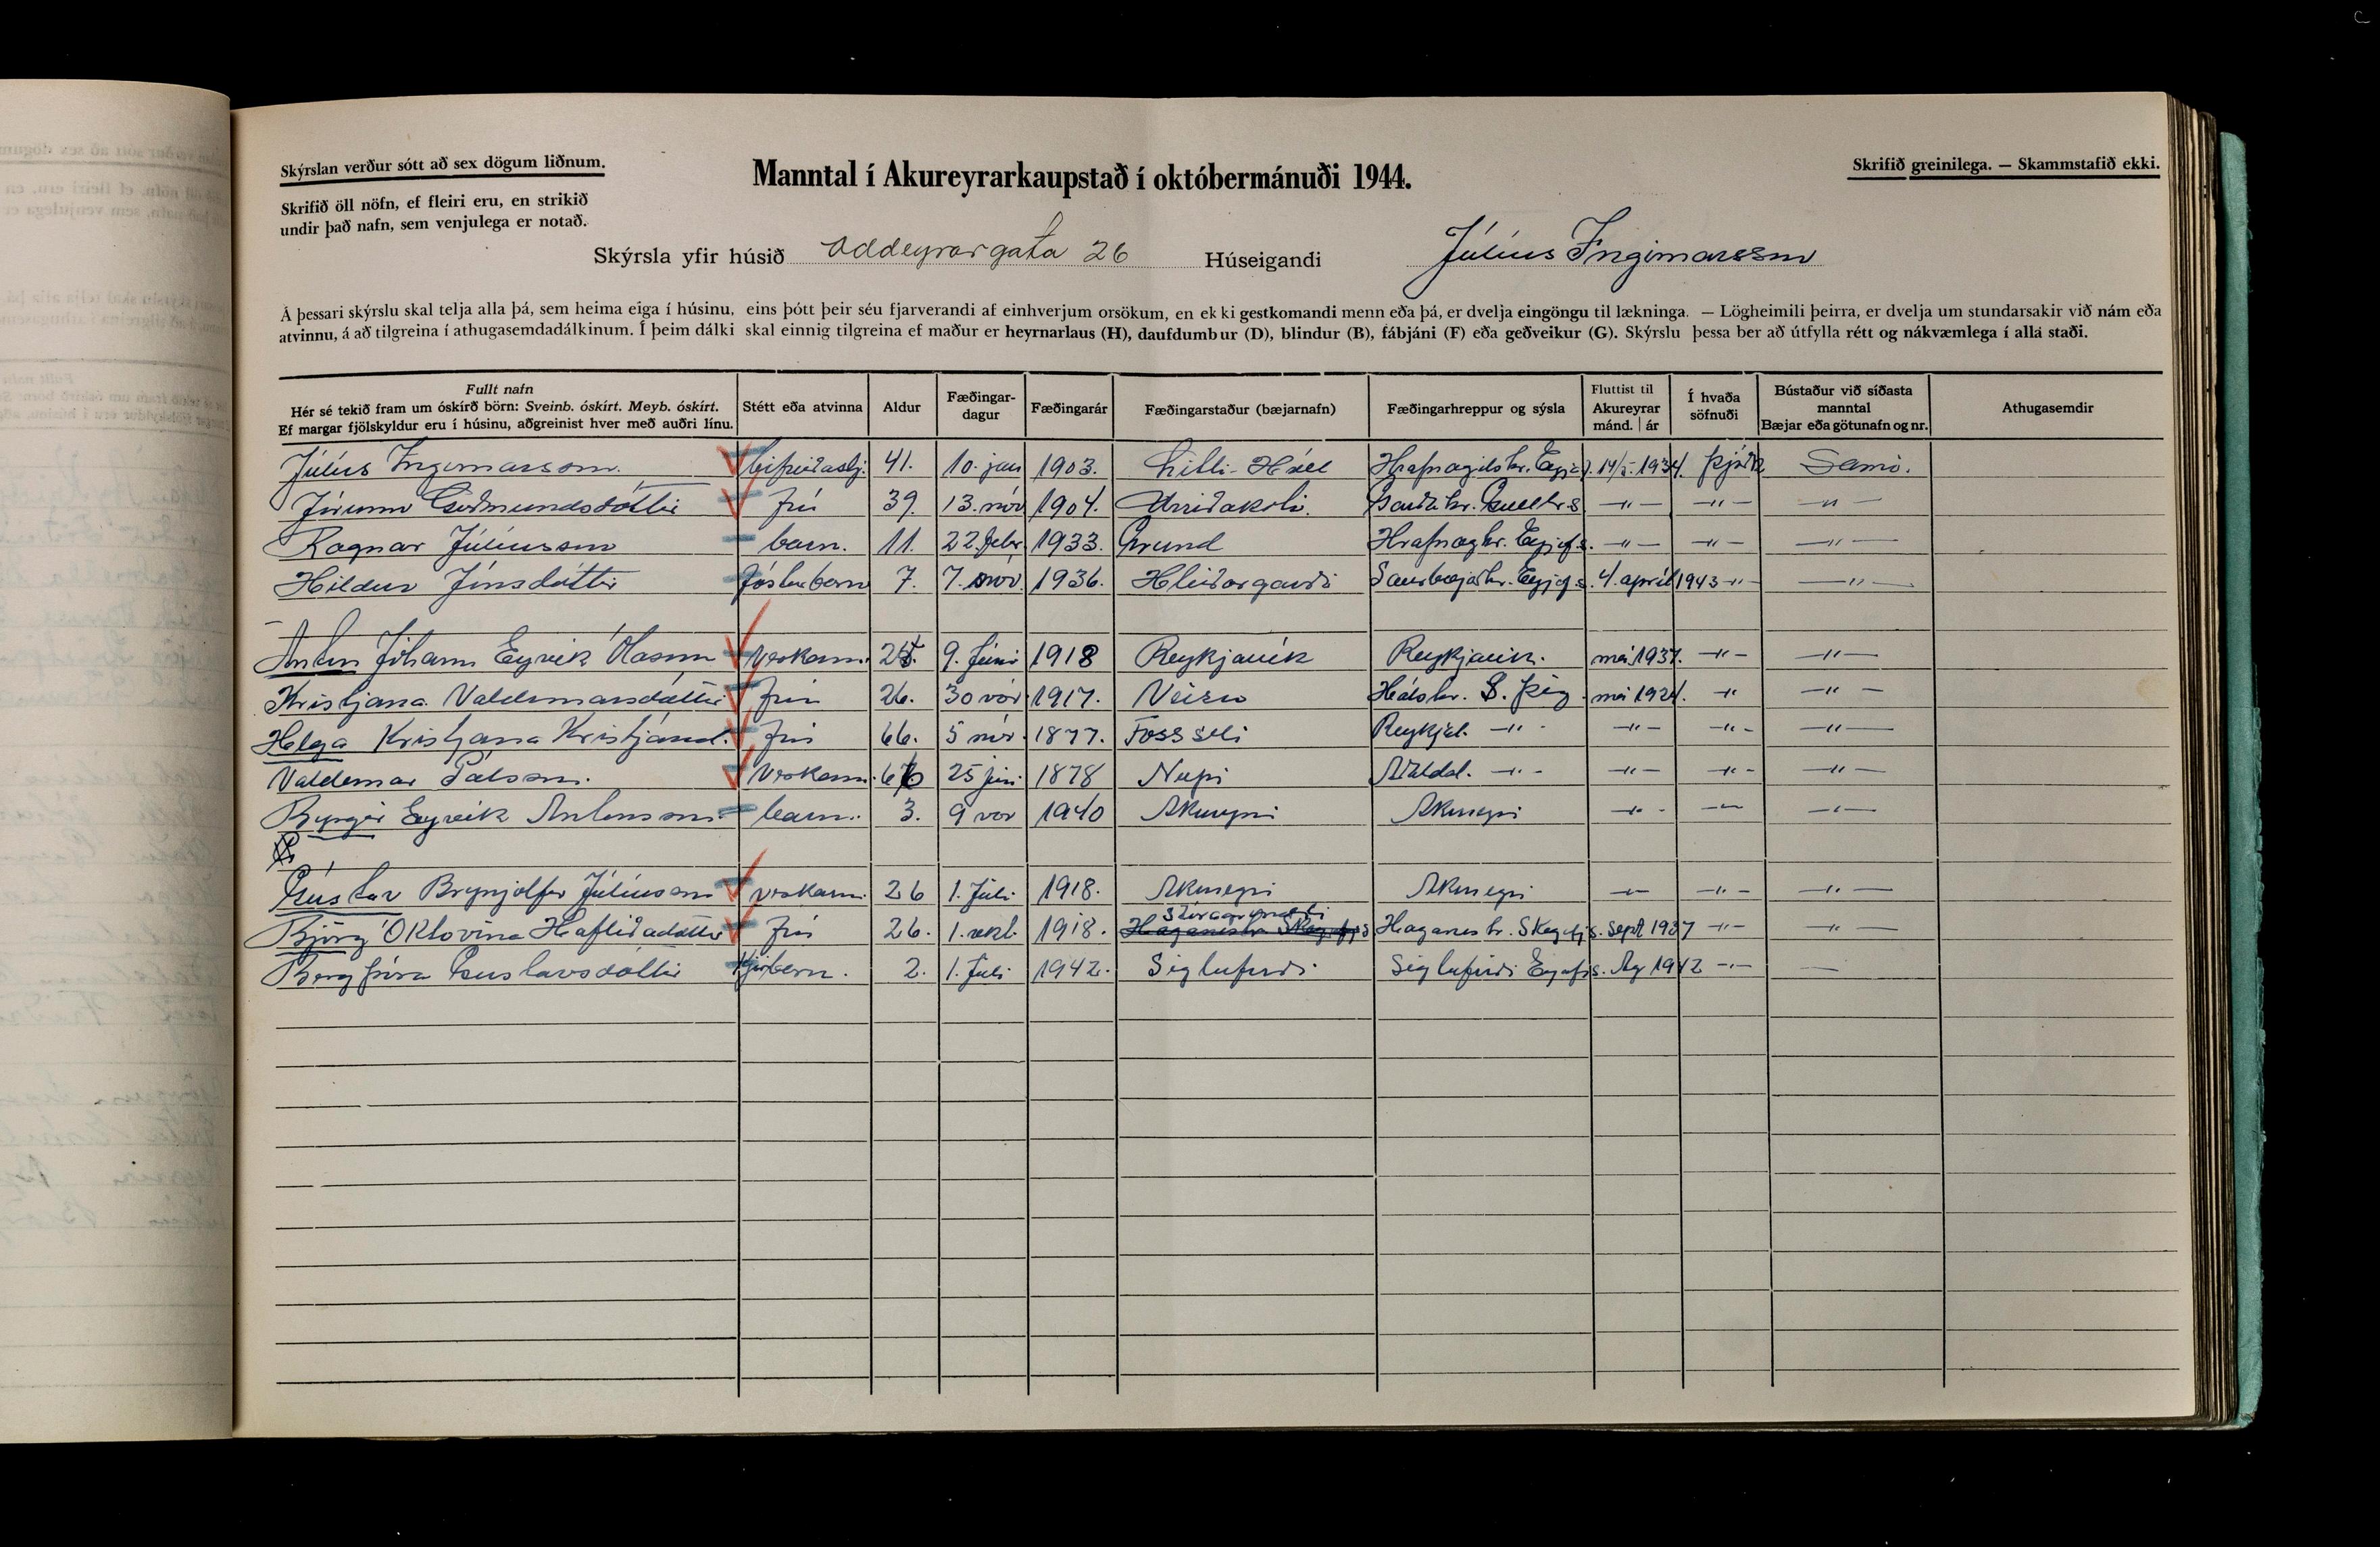 Skýrslan verður sótt að sex dögum liðnum.
Manntal í Akureyrarkaupstað í októbermánuði 1944.
Skrifið greinilega. — Skammstafið ekki.
Skrifið öll nöfn, ef fleiri eru, en strikið
undir það nafn, sem venjulega er notað.
Skýrsla yfir húsið Oddeyrargata 26 Húseigandi Júlíus Ingimarsson
Á þessari skýrslu skal telja alla þá, sem heima eiga í húsinu, eins þótt þeir séu fjarverandi af einhverjum orsökum, en ekki gestkomandi menn eða þá, er dvelja eingöngu til lækninga. — Lögheimili þeirra, er dvelja um stundarsakir við nám eða
atvinnu, á að tilgreina í athugasemdadálkinum. Í þeim dálki skal einnig tilgreina ef maður er heyrnarlaus (H), daufdumbur (D), blindur (B), fábjáni (F) eða geðveikur (G). Skýrslu þessa ber að útfylla rétt og nákvæmlega í alla staði.
Fullt nafn
Hér sé tekið fram um óskírð börn: Sveinb. óskírt. Meyb. óskírt.
Ef margar fjölskyldur eru í húsinu, aðgreinist hver með auðri línu.
Stétt eða atvinna
Aldur
Fæðingar-
dagur
Fæðingarár
Fæðingarstaður (bæjarnafn)
Fæðingarhreppur og sýsla
Fluttist til
Akureyrar
mánd. | ár
Í hvaða
söfnuði
Bústaður við síðasta
manntal
Bæjar eða götunafn og nr.
Athugasemdir
Júlíus Ingimarsson. bifreiðastj. 41. 10. jan 1903. Litli-Hóll Hrafnagilshr. Eyjaf. 14/5. 1934. Þjóðk Sami.
Jórunn Guðmundsdóttir frú 39. 13. nóv 1904. Urriðakoti. Garðahr. Gullbr.s —"— —"— —"—
Ragnar Júlíusson barn. 11. 22. febr. 1933. Grund Hrafnaghr. Eyjafs. —"— —"— —"—
Hildur Jónsdóttir fósturbarn 7. 7. nóv. 1936. Hleiðargarði Saurbæjarhr. Eyjafs. 4. apríl 1943 —"— —"—
Anton Jóhann Eyvík Ólason Verkam. 9. Júní 1918 Reykjavík Reykjavík. maí 1937. —"— —"—
Kristjana Valdemarsdóttir frú 26. 30 nóv. 1917. Veisu Hálshr. S. Þing. maí 1924. —"— —"—
Helga Kristjana Kristjánsd. frú 66. 5 nóv. 1877. Fossseli Reykjad. —"— —"— —"— —"—
Valdemar Pálsson. Verkam. 25 júní 1878 Núpi Aðaldal. —"— —"— —"— —"—
Eyvík Antonsson barn. 3. 9 nóv 1940 Akureyri Akureyri —"— —"— —"—
Gústav Brynjólfur Júlíusson verkam. 26 1. Júlí 1918. Akureyri Akureyri —"— —"— —"—
Björg Oktovína Hafliðadóttir frú 26. 1. okt. 1918. Haganeshr. Skagafjs Haganeshr. Skagafjs. sept 1937 —"— —"—
Bergþóra Gústavsdóttir barn. 2. 1. Júlí 1942. Siglufirði Siglufirði Eyjafs. Ág 1942 —"— —